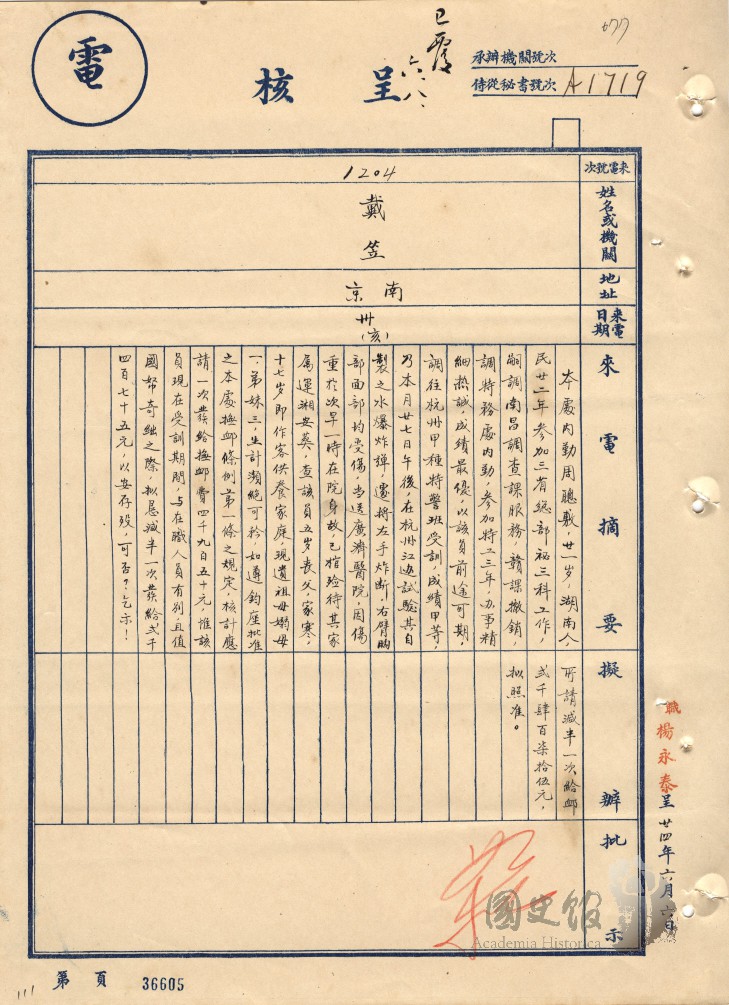 677
已覆
六.八.
電
呈核
承辦機關號次
侍從秘書號次 A1719
來電號次 1204
姓名或機關 戴笠
地址 南京
來電日期 卅(亥)
來電摘要
本處內勤周聰敷,廿一岁,湖南人,
民廿二年參加三省總部秘三科工作,
嗣調南昌調查課服務,贛課撤銷,
調特務處內勤,參加特工三年,办事精
細热誠,成績最優,以該員前途可期,
調往杭州甲種特警班受訓,成績甲等,
乃本月廿七日午後,在杭州江边試驗其自
製之水爆炸彈,遽將左手炸断,右臂胸
部面部均受傷,当送廣濟醫院,因傷
重於次早一時在院身故,已棺殮待其家
属運湘安葬,查該員五岁喪父,家寒,
十七岁即作客供養家庭,現遺祖母孀母
一,弟妹三,生計瀕絕可矜,如遵鈞座批准
之本處撫卹條例第一條之規定,核計應
請一次發給撫卹費四千九百五十元,惟該
員現在受訓期間,与在職人員有別,且值
國帑奇絀之際,拟恳減半一次發給弍千
四百七十五元,以安存歿,可否?乞示!
擬辦
所請減半一次給卹
弍千肆百柒拾伍元,
拟照准。
批示
職楊永泰呈 廿四年六月六日
國史館
Academia Historica
第 頁
36605
111